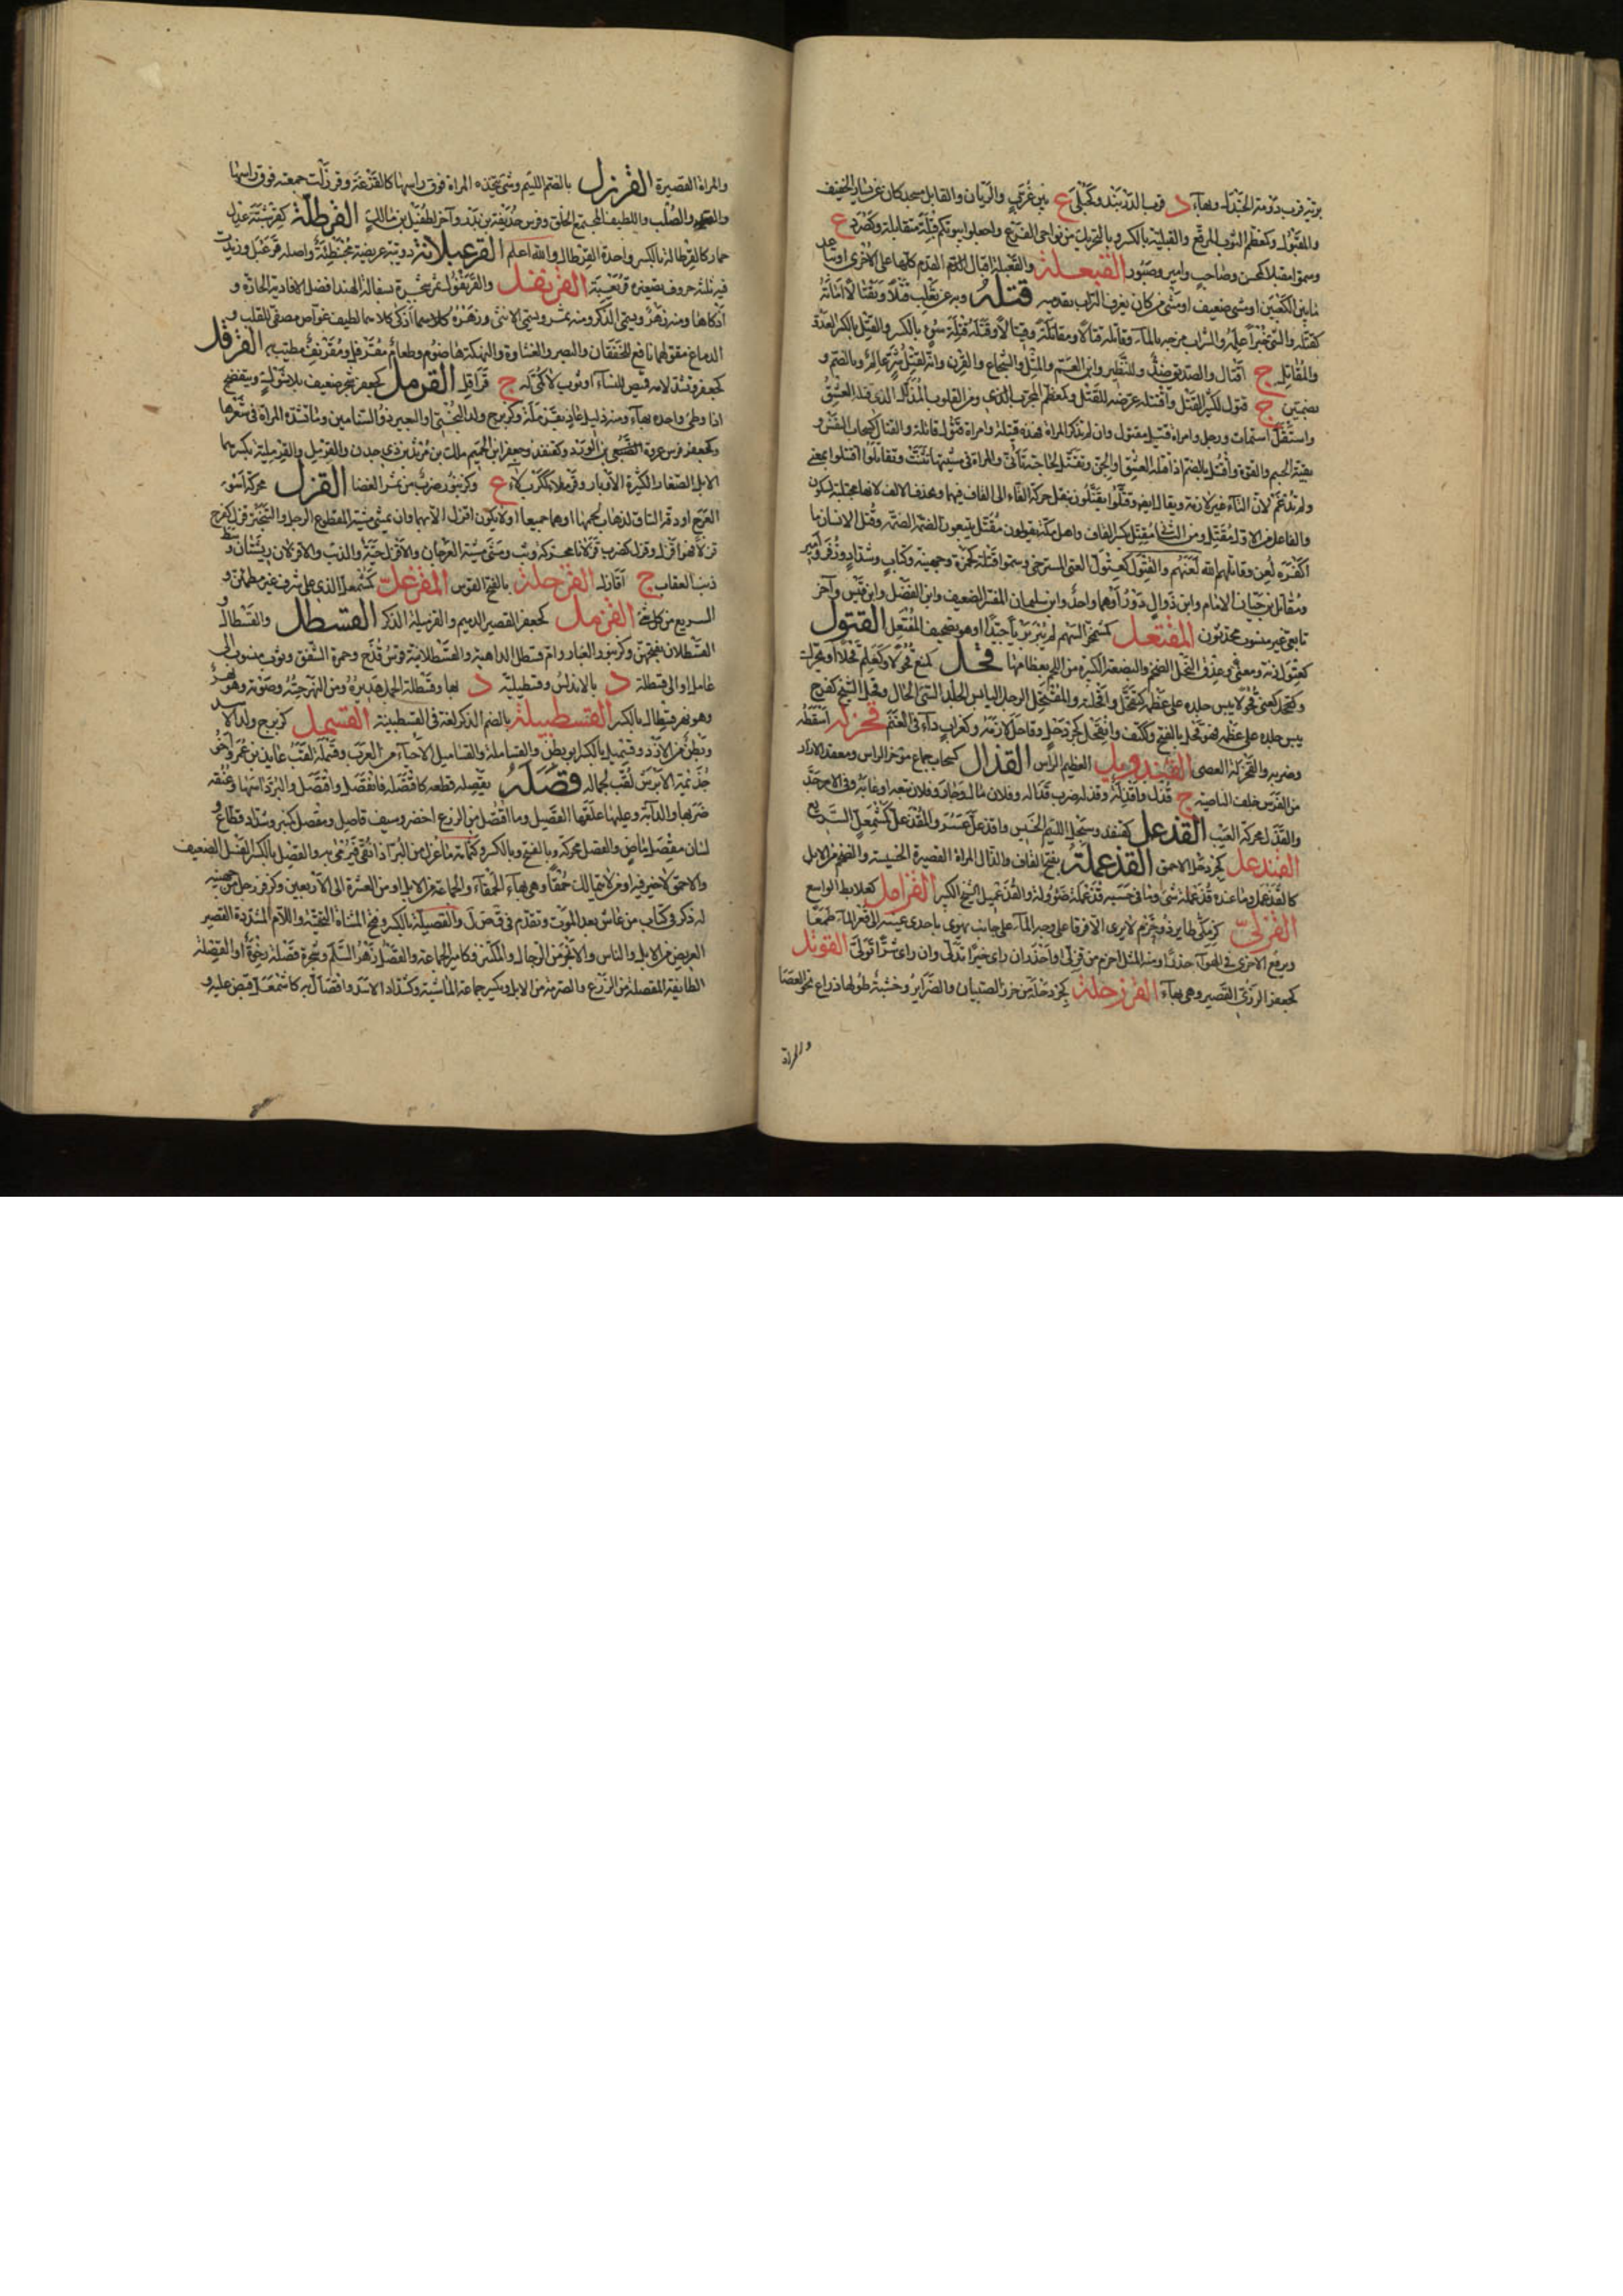 برية قرب دومة الجندل وبهاء د قرب الدربند وكحبلى ع بين غرب والريان والقابل مسجد كان عن يسار الخيف
والمقبول وكمعظم الثوب المرقع والقبلية بالكسر وبالتحريك من نواحي الفرع واجعلوا بيوتكم قبلة متقابلة وكصرد ع
وسموا مقبلا كمحسن وصاحب وامير وصبور القبعلة والقعبلة اقبال القدم كلها على الاخرى او تباعد
ما بين الكعبين او مشي ضعيف او مشي من كان يغرف التراب بقدميه قتله وبه عن ثعلب قتلا وتقتالا اماته
كقتله والشيء خبرا علمه والشراب مزجه بالماء وقاتله قتالا ومقاتلة وقيتالا وقتله قتلة سوء بالكسر والقتل بالكسر العدو
والمقاتل ج اقتال والصديق ضد والنظير وابن العم والمثل والشجاع والقرن وانه لقتل شر عالم به وبالضم و
بضمتين ج قتول لكثير القتل واقتله عرضه للقتل وكمعظم المجرب ومن القلوب المذلل الذي قتله العشق
واستقتل استمات ورجل وامراة قتيل مقتول وان لم تذكر المراة فهذه قتيلة وامراة قتول قاتلة والقتال كسحاب النفس و
بقية الجسم والقوة واقتتل بالضم اذا قتله العشق او الجن وتقتل لحاجته تاتى والمراة في مشيتها تثنت وتقاتلوا اقتتلوا بمعنى
ولم تدغم لان التاء غير لازمة ويقال ايضا وقتلوا يقتلون بنقل حركة التاء الى القاف فيهما وبحذف الالف لانها مجتلبة لسكون
والفاعل من الاول مقتل ومن الثاني مقتل بكسر القاف واهل مكة يقولون مقتل يتبعون الضمة الضمة وقتل الانسان ما
اكفره لعن وقاتلهم الله لعنهم والقثول كعثول العيي المسترخي وسموا قتلة كحمزة وجهينة وكتاب وشداد وزفر وامير
ومقاتل بن حيان الامام وابن ذوال دوز او هما واحد وابن سليمان المفسر الضعيف وابن الفضل وابن قيس واخر
تابعي غير منسوب محدثون المقثعل كمشمخر السهم لم يبر بريا جيدا او هو تصحيف المقتعل القثول
كعثول زنة ومعنى وعذق النخل الضخم والبضعة الكبيرة من اللحم بعظامها قحل كمنع قحولا وكعلم قحلا او تحرك
وكحد كعني قحولا يبس جلده على عظمه كتقحل واقحله والمتقحل الرجل اليابس الجلد السيئ الحال وقحل الشيخ كفرح
يبس جلده على عظمه فهو قحل بالفتح وككتف وانقحل كجردحل وقاحل لازمة وكغراب داء في الغنم قحزله اسقطه
وضربه والقحزلة العصى القندويل العظيم الراس القذال كسحاب جماع مؤخر الراس ومعقد العذار
من الفرس خلف الناصية ج قذل واقذلة وقذله ضرب قذاله وفلان مال وجار وفلان تبعه او عابه وفي الامر جد
والقذل محركة العيب القذعل كقنفذ وسبحل اللئيم الخسيس واقذعل عسر والمقذعل كمشمعل السريع
القندعل كجردحل الاحمق القذعملة بفتح القاف والذال المراة القصيرة الخسيسة والضخم من الابل
كالقذعمل وما عنده قذعملة شيء وما في حسبه قذعملة ضؤولة والقذعميل الشيخ الكبير القراميل كعلابط الواسع
القرلى كزمكى طاير ذو حزم لا يرى الا فرقا على وجه الماء على جانب يهوي باحدى عينيه الى قعر الماء طمعا
ويرفع الاخرى في الهواء حذرا ومنه المثل احزم من قرلى واحذر ان راى خيرا تدلى وان راى شرا تولى القرثل
كجعفر الزري القصير وهي بهاء القرزحلة كجردحلة من خرز الصبيان والضرائر وخشبة طولها ذراع نحو العصا
والمراة
والمراة القصيرة القرزل بالضم اللئيم وشيء تتخذه المراة فوق راسها كالقنزعة وقرزلت جمعته فوق راسها
والقيد والصلب واللطيف المجتمع الخلق وفرس حذيفة بن بدر واخر لطفيل بن مالك القرطلة كقرشبة عدل
حمار كالقرطالة بالكسر واحدة القرطال والله اعلم القرعبلانة دويبة عريضة محبنطئة واصله قرعبل وزيدت
فيه ثلثة حروف تصغيره قريعبة القرنفل والقرنفول ثمر شجرة بسفالة الهند افضل الافاوية الحارة و
اذكاها ومنه زهر ويسمى الذكر ومنه ثمر ويسمى الانثى وزهره كلاهما اذكى كلاهما لطيف غواص مصفى للقلب و
الدماغ مقو لهما نافع للخفقان والبصر والغشاوة والنهكة هاضوم وطعام مقرفل ومقرنف مطيب به القرقل
كجعفر وتشدد لامه قميص للنساء او ثوب لا كمي له ج قراقل القرمل كجعفر شجر ضعيف بلا شوك ينفضخ
اذا وطئ واحده بهاء ومنه ذليل عاذ بقرملة وكزبرج ولد البختي او البعير ذو السنامين وما تشده المراة في شعرها
وكجعفر فرس عروة بن الورد وكقنفذ وجعفر ابن الحميم ملك بن مرثد بن ذي جدن والقرمل والقرملية بكسرهما
الابل الصغار الكثيرة الاوبار وقرملاء ككربلاء ع وكزنبور ضرب من ثمر الغضا القزل محركة اسوء
العرج او دقة الساق لذهاب لحمها او هما جميعا اولا يكون اقزل الا بهما وان يمشي مشية المقطوع الرجل والتبختر قزل كفرح
قزلا فهو اقزل وقزل كضرب قزلانا محركة وثب ومشى مشية العرجان والاقزل حية والذئب والاقزلان ريشتان وسط
ذنب العقاب ج اقازل القزحلة بالفتح القوس المقزعل كمشمعل الذي على شرف غير مطمئن و
السريع من كل شيء القزمل كجعفر القصير الدميم والقزميلة الذكر القسطل والقسطال و
القسطلان بفتحهن وكزنبور الغبار وام قسطل الداهية والقسطلانية قوس قزح وحمرة الشفق وثوب منسوب الى
عامل او الى قسطلة د بالاندلس وقسطيلية د بها وقسطلة الجمل هديره ومن النهر حسه وصوته وهو
وهو نهر قسطال بالكسر القسطبيلة بالضم الذكر لغة في القسطبينة القسمل كزبرج ولد الاسد
وبطن من الازد وقسميل بالكسر ابو بطن والقساملة والقساميل الاحياء من العرب وقسملة لقب عايذ بن عمرو اخي
جذيمة الابرش لقب لجماله قصله يقصله قطعه كاقتصله فانقصل واقتصل والبر داسها وعنقه
ضربها والدابة وعليها علفها القصيل وما اقتصل من الزرع اخضر وسيف قاصل ومقصل كمنبر وشداد قطاع و
لسان مقصل ماض والقصل محركة وبالفتح وبالكسر وكثمامة ما عزل من البر اذا نقي فيرمى به والقصل بالكسر الفسل الضعيف
والاحمق لا خير فيه او من لا يتمالك حمقا وهي بهاء الحمقاء والجماعة من الابل او من العشرة الى الاربعين وكزفر رجل من جهينة
له ذكر في كتاب من عاش بعد الموت وتقدم في ف ض ل والقصيلة بالكسر وفتح المثناة التحتية واللام المشددة القصير
العريض من الابل والناس والانجر من الرجال والمكتنز وكامير الجماعة والقصل زهر السلم وشجرة قصلة رخوة او القصلة
الطايفة المقصلة من الزرع والصرمة من الابل وكبير جماعة الماشية وكشداد الاسد واقصال به كاشمعل قبض عليه و